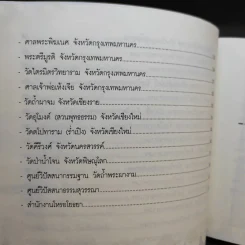 - ศาลพระพิฆเนศ จังหวัดกรุงเทพมหานคร
- พระตรีมูรติ จังหวัดกรุงเทพมหานคร
- วัดไตรมิตรวิทยาราม จังหวัดกรุงเทพมหานคร
- ศาลเจ้าพ่อเห้งเจีย จังหวัดกรุงเทพมหานคร
- วัดถ้ำผาจม จังหวัดเชียงราย
- วัดอุโมงค์ (สวนพุทธธรรม) จังหวัดเชียงใหม่
- วัดตโปทาราม (ร่ำเปิง) จังหวัดเชียงใหม่
- วัดคีรีวงศ์ จังหวัดนครสวรรค์
- วัดป่าน้ำโจน จังหวัดพิษณุโลก
- ศูนย์วิปัสสนากรรมฐาน วัดถ้ำพระผางาม
- ศูนย์วิปัสสนาธรรมสุวรรณา
- สำนักงานโหรอโยธยา